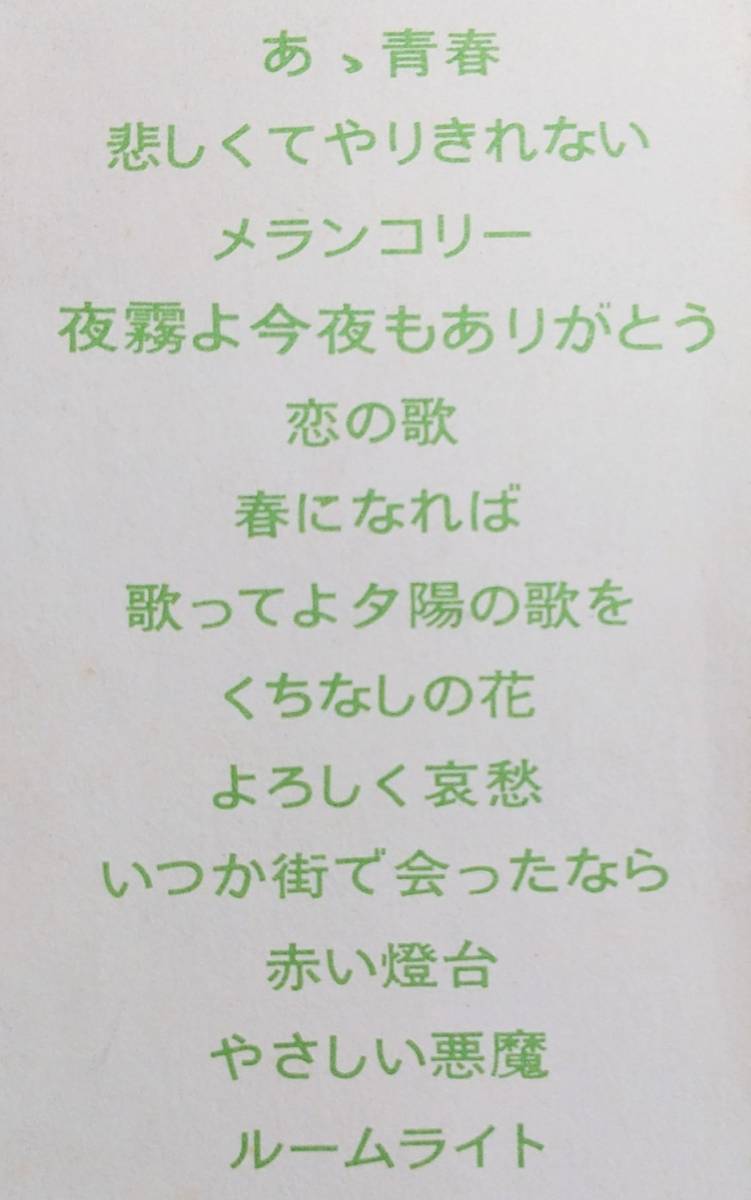 あゝ青春
悲しくてやりきれない
メランコリー
夜霧よ今夜もありがとう
恋の歌
春になれば
歌ってよ夕陽の歌を
くちなしの花
よろしく哀愁
いつか街で会ったなら
赤い燈台
やさしい悪魔
ルームライト